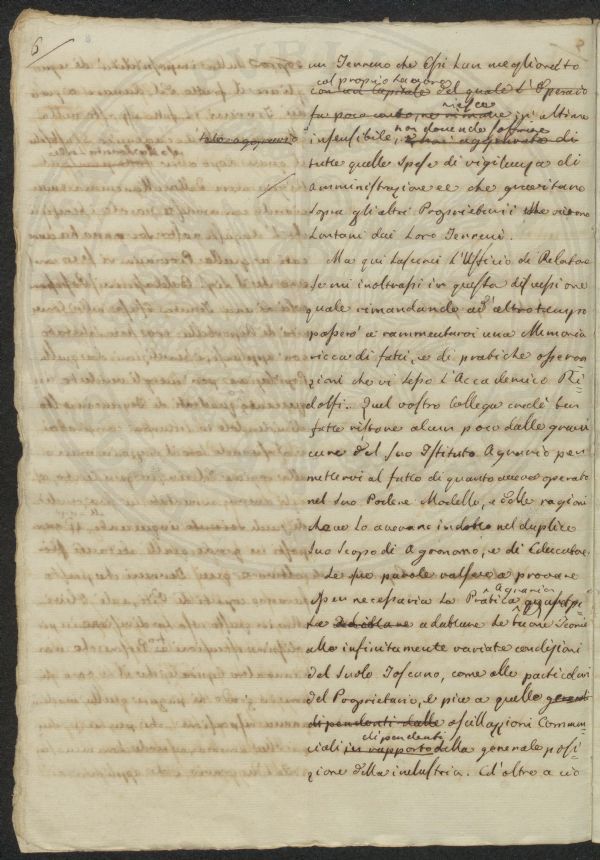 6
un Terreno che essi han migliorato
col proprio lavoro
con un Capitale del quale l'Operaio
fa poco conto, ne rimane riesce in'ultimo
insensibile, non dovendo soffrire
tale aggravio
tutte quelle Spese di vigilanza di
amministrazione ec che gravitano
sopra gli altri Proprietarii che vivono
Lontani dai Loro Terreni.
Ma qui lascerei l'Ufficio di Relatore
se mi inoltrassi in questa discussione
quale rimandando ad altro tempo
passerò a rammentarvi una Memoria
ricca di fatti, e di pratiche osserva=
zioni che vi lesse l'Accademico Ri=
dolfi. Quel vostro Collega credè ben
fatto ristare alcun poco dalle gravi
cure del Suo Istituto Agrario per
mettervi al fatto di quanto aveva operato
nel Suo Podere Modello, e delle ragioni
che ve lo avevano indotto nel duplice
Suo Scopo di Agronomo, e di Educatore.
Le sue parole valsero a provare
Agraria
esser necessaria la Pratica
la adattare le buone Teorie
alle infinitamente variate condizioni
del Suolo Toscano, come alle particolari
del Proprietario, e più a quelle generali
dipendenti dalle oscillazioni Commer=
dipendenti
ciali in rapporto dalla generale posi=
zione della industria. Ed oltre a ciò